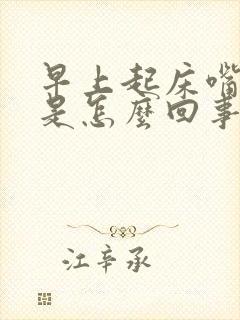 早上起床嘴
是怎麼回事
江辛承